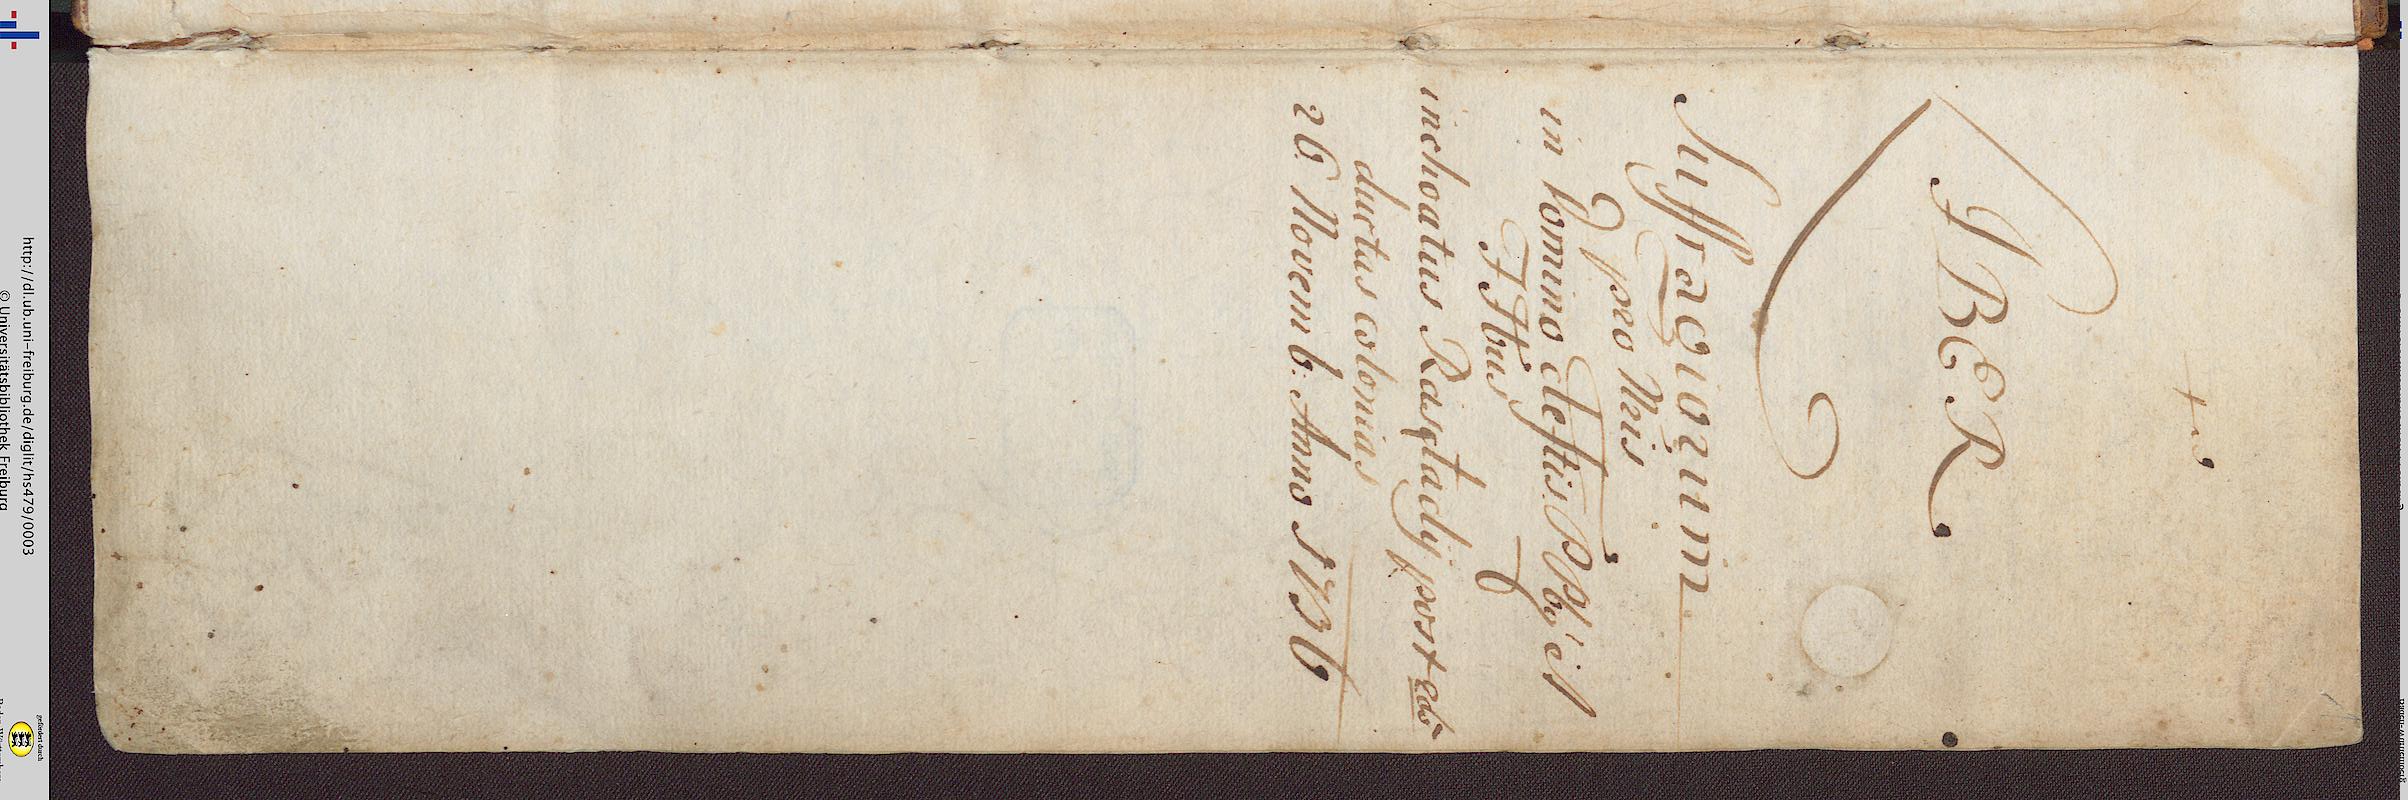 LIBER
Suffragiorum
pro Neis
in Domino defftis PPby et
FFbus
inchoatus Rastadij post red
ductus colonias
26 Novemb: Anno 1736
http://dl.ub.uni-freiburg.de/diglit/hs479/0003
© Universitätsbibliothek Freiburg
gefördert durch